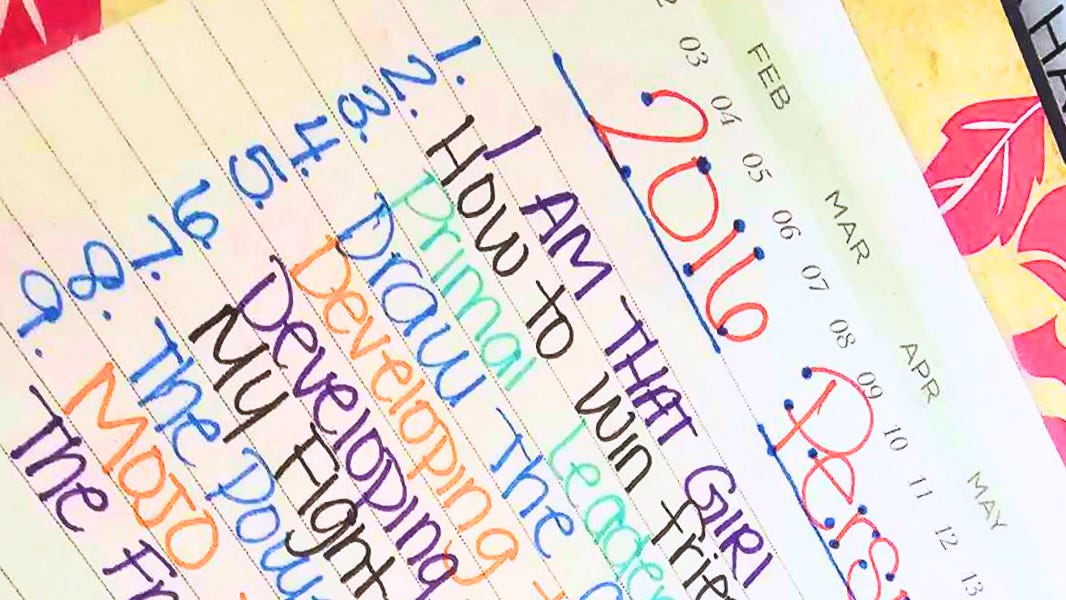 FEB MAR APR MAY
03 04 05 06 07 08 09 10 11 12 13
2016 Pers
1. I AM THAT GIRl
2. How to Win Frie
3. Primal Leader
4. Draw The
5. Developing
6. Developing
7. My Fight
8. The Pow
9. MOJO
The Fr
HA